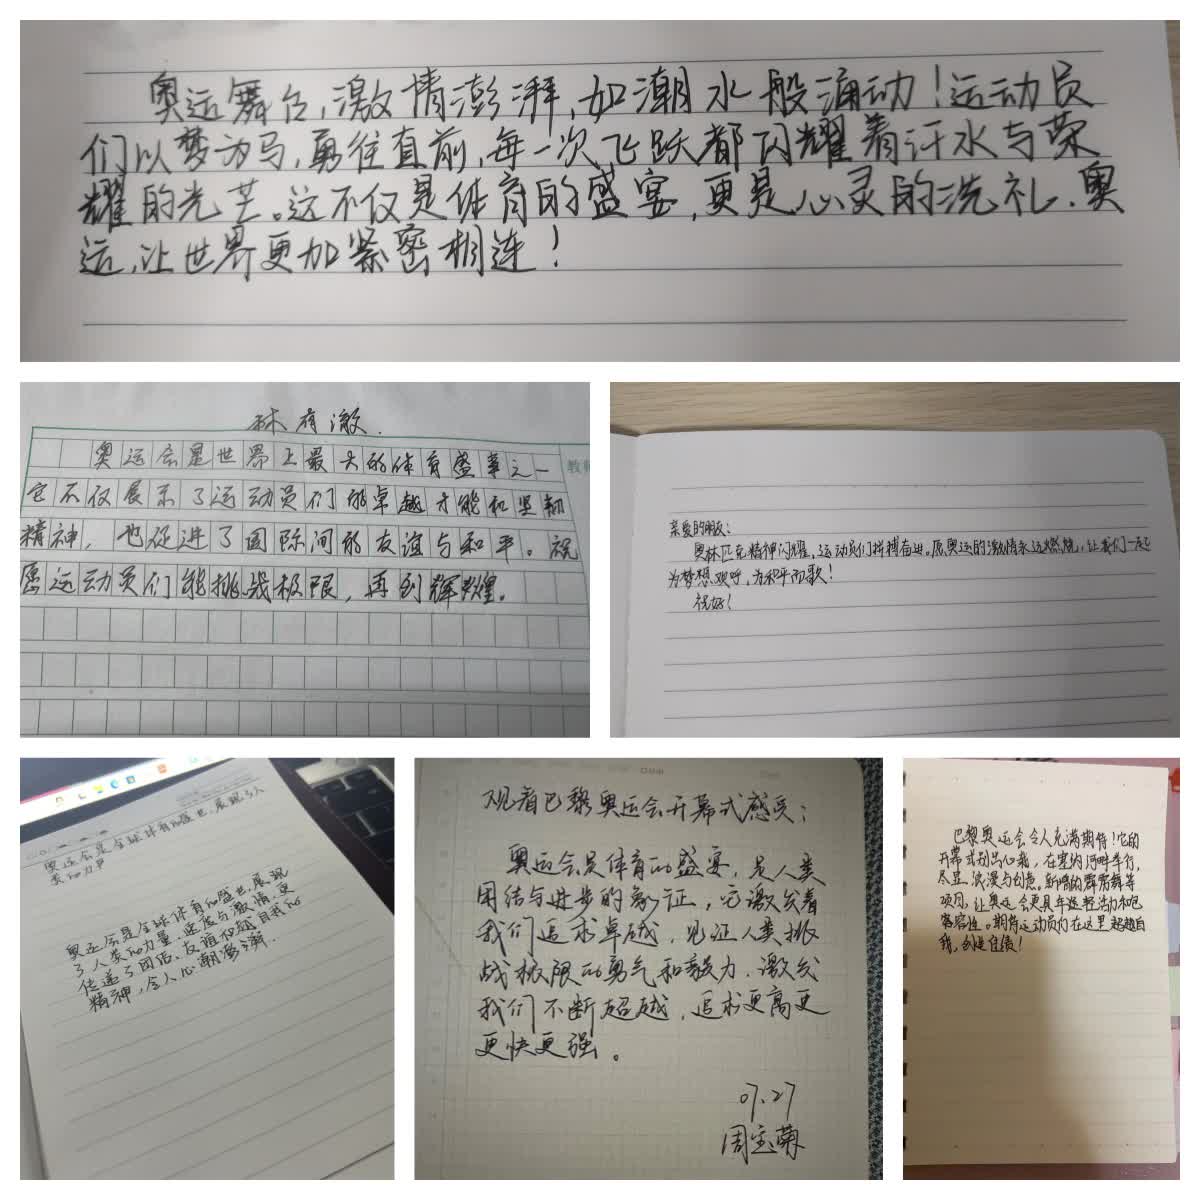 奥运舞台,激情澎湃,如潮水般涌动!运动员
们以梦为马,勇往直前,每一次飞跃都闪耀着汗水与荣
耀的光芒。这不仅是体育的盛宴,更是心灵的洗礼.奥
运,让世界更加紧密相连!
林有澈.
奥运会是世界上最大的体育盛事之一
它不仅展示了运动员们的卓越才能和坚韧
精神,也促进了国际间的友谊与和平。祝
愿运动员们能挑战极限,再创辉煌。
亲爱的朋友:
奥林匹克精神闪耀,运动员们拼搏奋进。愿奥运的激情永远燃烧,让我们一起
为梦想欢呼,为和平而歌!
祝好!
奥运会是全球体育的盛世,展现了人
类的力
奥运会是全球体育的盛世,展现
了人类的力量、速度与激情,更
传递了团结、友谊和超越自我的
精神,令人心潮澎湃.
观看巴黎奥运会开幕式感受:
奥运会是体育的盛宴,是人类
团结与进步的象征,它激发着
我们追求卓越,见证人类挑
战极限的勇气和毅力.激发
我们不断超越,追求更高更
更快更强。
07.27
周宝菊
巴黎奥运会令人充满期待!它的
开幕式别出心裁,在塞纳河畔举行,
尽显浪漫与创意。新增的霹雳舞等
项目,让奥运会更具年轻活力和包
容性。期待运动员们在这里超越自
我,创造佳绩!